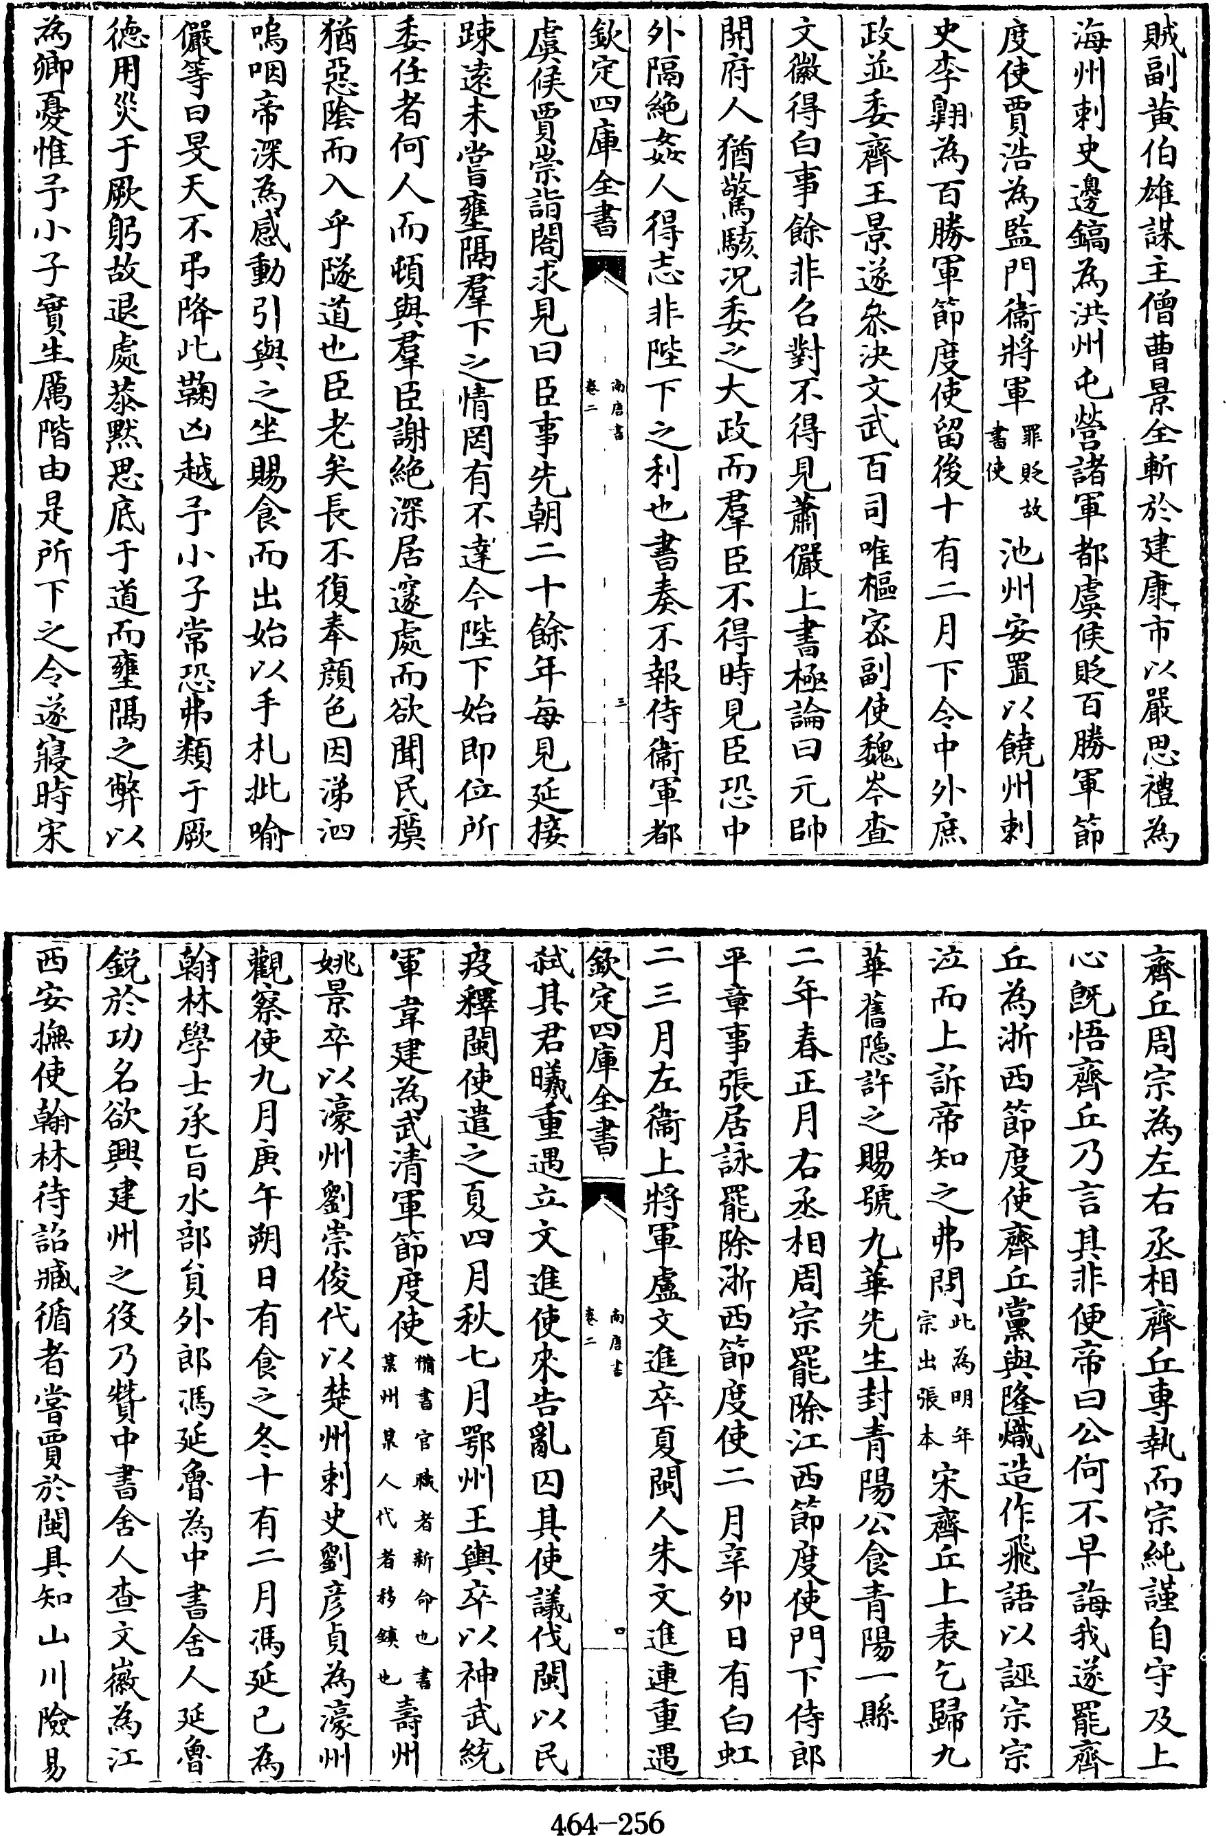 賊副黃伯雄謀主僧曹景全斬於建康市以嚴思禮為
海州刺史邊鎬為洪州屯營諸軍都虞候貶百勝軍節
度使賈浩為監門衞將軍罪貶故書使池州安置以饒州刺
史李翺為百勝軍節度使留後十有二月下令中外庶
政並委齊王景遂叅決文武百司唯樞宻副使魏岑查
文徽得白事餘非召對不得見蕭儼上書極論曰元帥
開府人猶驚駭况委之大政而羣臣不得時見臣恐中
外隔絶姦人得志非陛下之利也書奏不報侍衞軍都
欽定四庫全書
南唐書
卷二
三
虞候賈崇詣閤求見曰臣事先朝二十餘年每見延接
踈遠未嘗壅隔羣下之情罔有不達今陛下始即位所
委任者何人而頓與羣臣謝絶深居邃處而欲聞民瘼
猶惡陰而入乎隧道也臣老矣長不復奉顔色因涕泗
嗚咽帝深為感動引與之坐賜食而出始以手札批喻
儼等曰旻天不弔降此鞠凶越予小子常恐弗類于厥
徳用災于厥躬故退處恭黙思底于道而壅隔之弊以
為卿憂惟予小子實生厲階由是所下之令遂寢時宋
齊丘周宗為左右丞相齊丘專執而宗純謹自守及上
心既悟齊丘乃言其非便帝曰公何不早誨我遂罷齊
丘為浙西節度使齊丘黨與隆熾造作飛語以誣宗宗
泣而上訴帝知之弗問此為明年宗出張本宋齊丘上表乞歸九
華舊隱許之賜號九華先生封青陽公食青陽一縣
二年春正月右丞相周宗罷除江西節度使門下侍郎
平章事張居詠罷除浙西節度使二月辛卯日有白虹
二三月左衞上將軍盧文進卒夏閩人朱文進連重遇
欽定四庫全書
南唐書
卷二
四
弑其君曦重遇立文進使來告亂囚其使議伐閩以民
疫釋閩使遣之夏四月秋七月鄂州王輿卒以神武統
軍韋建為武清軍節度使備書官職者新命也書某州某人代者移鎮也壽州
姚景卒以濠州劉崇俊代以楚州刺史劉彦貞為濠州
觀察使九月庚午朔日有食之冬十有二月馮延己為
翰林學士承旨水部員外郎馮延魯為中書舍人延魯
鋭於功名欲興建州之役乃贊中書舍人查文徽為江
西安撫使翰林待詔臧循者嘗賈於閩具知山川險易
464-256